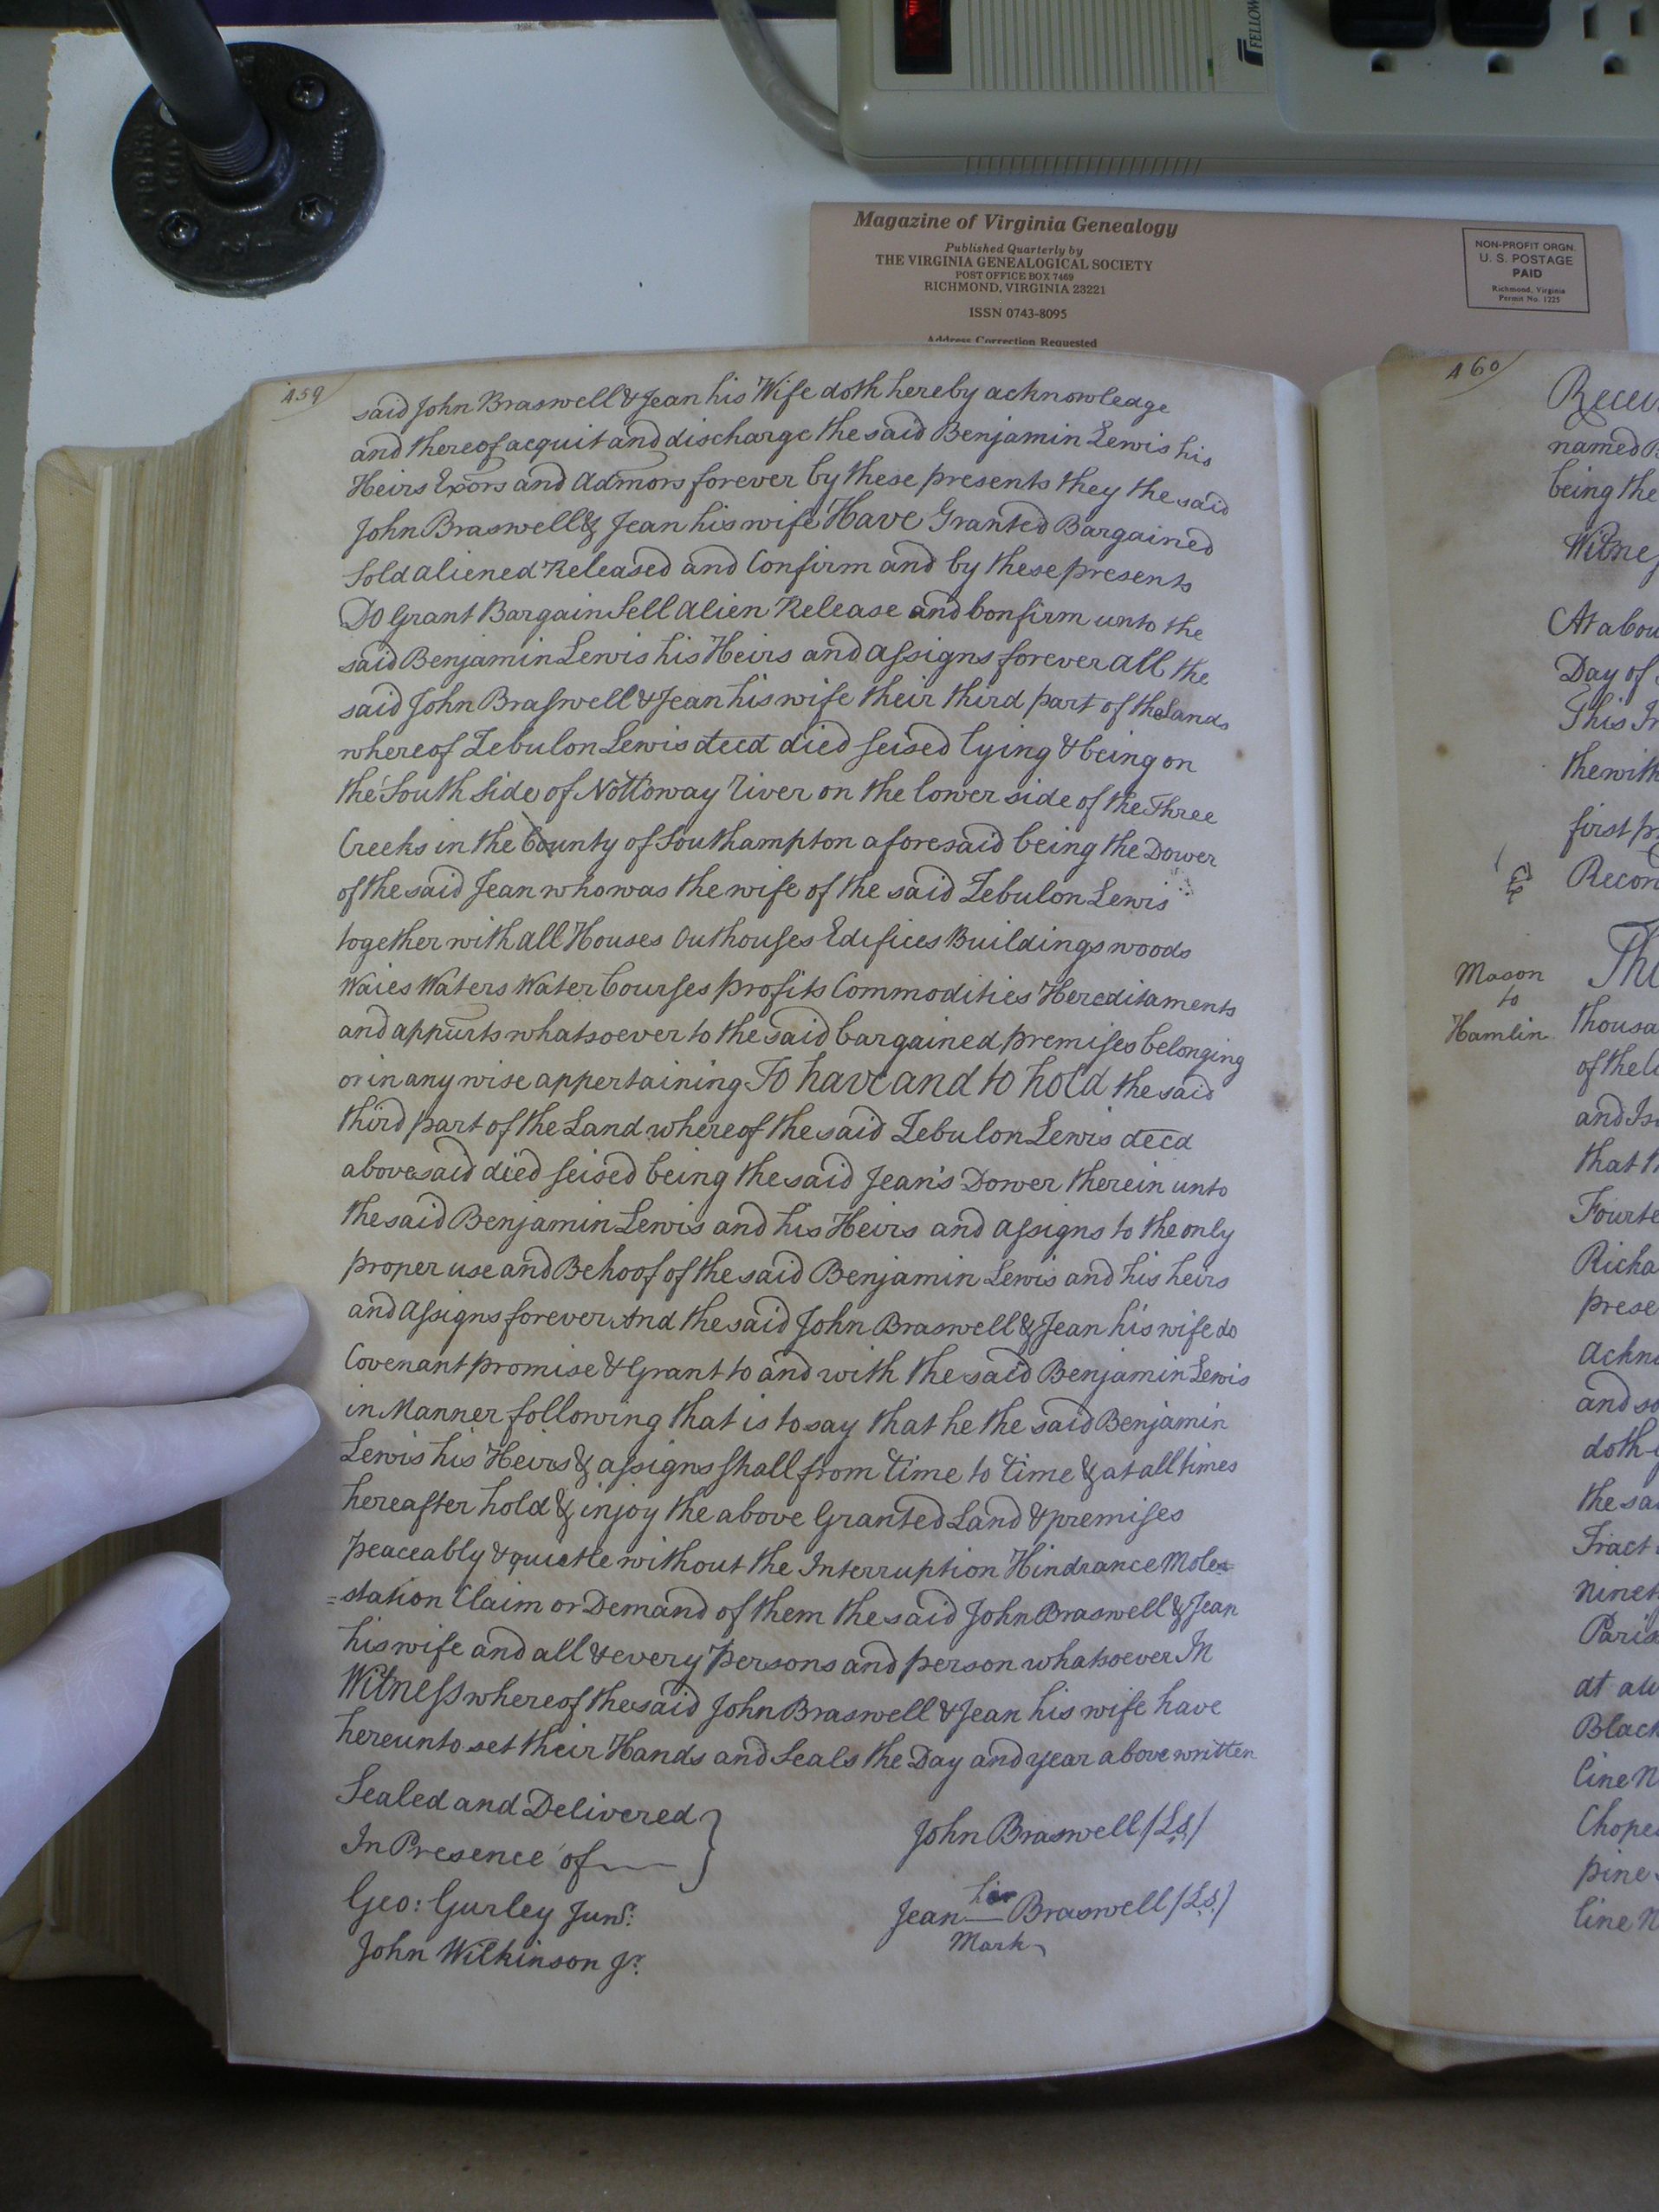 FELLOW
Magazine of Virginia Genealogy
Published Quarterly by
THE VIRGINIA GENEALOGICAL SOCIETY
POST OFFICE BOX 7469
RICHMOND, VIRGINIA 23221
ISSN 0743-8095
Address Correction Requested
NON-PROFIT ORGN.
U. S. POSTAGE
PAID
Richmond, Virginia
Permit No. 1225
459
said John Braswell & Jean his Wife doth hereby acknowledge
and thereof acquit and discharge the said Benjamin Lewis his
Heirs Exors and Admors forever by these presents they the said
John Braswell & Jean his wife Have Granted Bargained
Sold aliened Released and Confirm and by these presents
Do Grant Bargain Sell Alien Release and Confirm unto the
said Benjamin Lewis his Heirs and Assigns forever All the
said John Braswell & Jean his wife their third part of the Lands
whereof Zebulon Lewis decd died seised lying & being on
the South Side of Nottoway River on the lower side of the Three
Creeks in the County of Southampton aforesaid being the Dower
of the said Jean who was the wife of the said Zebulon Lewis
together with all Houses Outhouses Edifices Buildings woods
Waies Waters Water Courses profits Commodities Hereditaments
and appurts whatsoever to the said bargained premises belonging
or in any wise appertaining To have and to hold the said
third part of the Land whereof the said Zebulon Lewis decd
abovesaid died seised being the said Jean's Dower therein unto
the said Benjamin Lewis and his Heirs and assigns to the only
proper use and Behoof of the said Benjamin Lewis and his heirs
and assigns forever And the said John Braswell & Jean his wife do
Covenant promise & Grant to and with the said Benjamin Lewis
in Manner following that is to say that he the said Benjamin
Lewis his Heirs & assigns shall from time to time & at all times
hereafter hold & injoy the above Granted Land & premises
peaceably & quietle without the Interruption Hindrance Moles=
=station Claim or Demand of them the said John Braswell & Jean
his wife and all & every Persons and person whatsoever In
Witness whereof the said John Braswell & Jean his wife have
hereunto set their Hands and Seals the Day and year above written
Sealed and Delivered
In Presence of
Geo: Gurley Junr:
John Wilkinson Jr.
John Braswell (Ls)
her
Jean — Braswell (Ls)
Mark
460
Receiv
named B
being the
Witness
At a
Day of
This In
the with
first
Mason
to
Hamlin
thousa
of the
and
that
Fourte
Richa
prese
Ackn
and so
doth
the sa
Tract
ninet
Paris
at
Black
line
pine
line